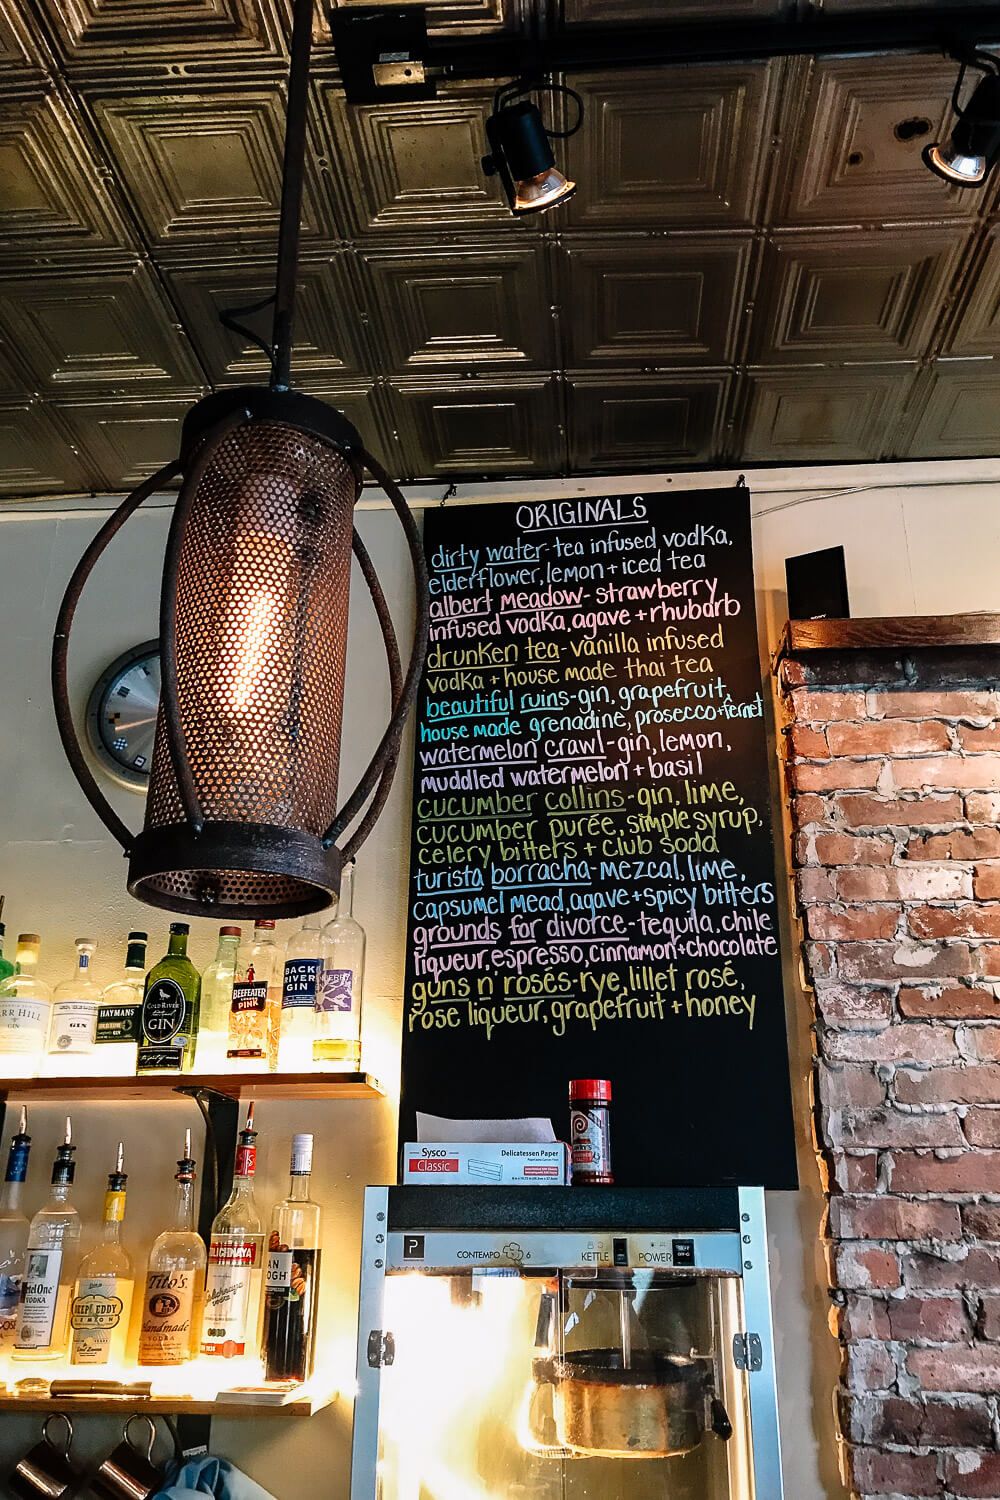 ORIGINALS
dirty water-tea infused vodka,
elderflower, lemon + iced tea
albert meadow- strawberry
infused vodka, agave + rhubarb
drunken tea-vanilla infused
vodka + house made thai tea
beautiful ruins-gin, grapefruit,
house made grenadine, prosecco+fernet
watermelon crawl-gin, lemon,
muddled watermelon + basil
cucumber collins-gin, lime,
cucumber purée, simple syrup,
celery bitters + club soda
turista borracha-mezcal, lime,
capsumel mead, agave+spicy bitters
grounds for divorce-tequila, chile
liqueur, espresso, cinnamon+chocolate
guns n' rosés-rye, lillet rosé,
rose liqueur, grapefruit + honey
SONY
GIN
HAYMANS
GIN
COLD RIVER
GIN
BEEFEATER
PINK
BACK
RIVER
GIN
Sysco
Classic
Delicatessen Paper
Ketel One
VODKA
DEEP EDDY
LEMON
Tito's
Handmade
VODKA
STOLICHNAYA
P
PARAGON
CONTEMPO 6
KETTLE
POWER